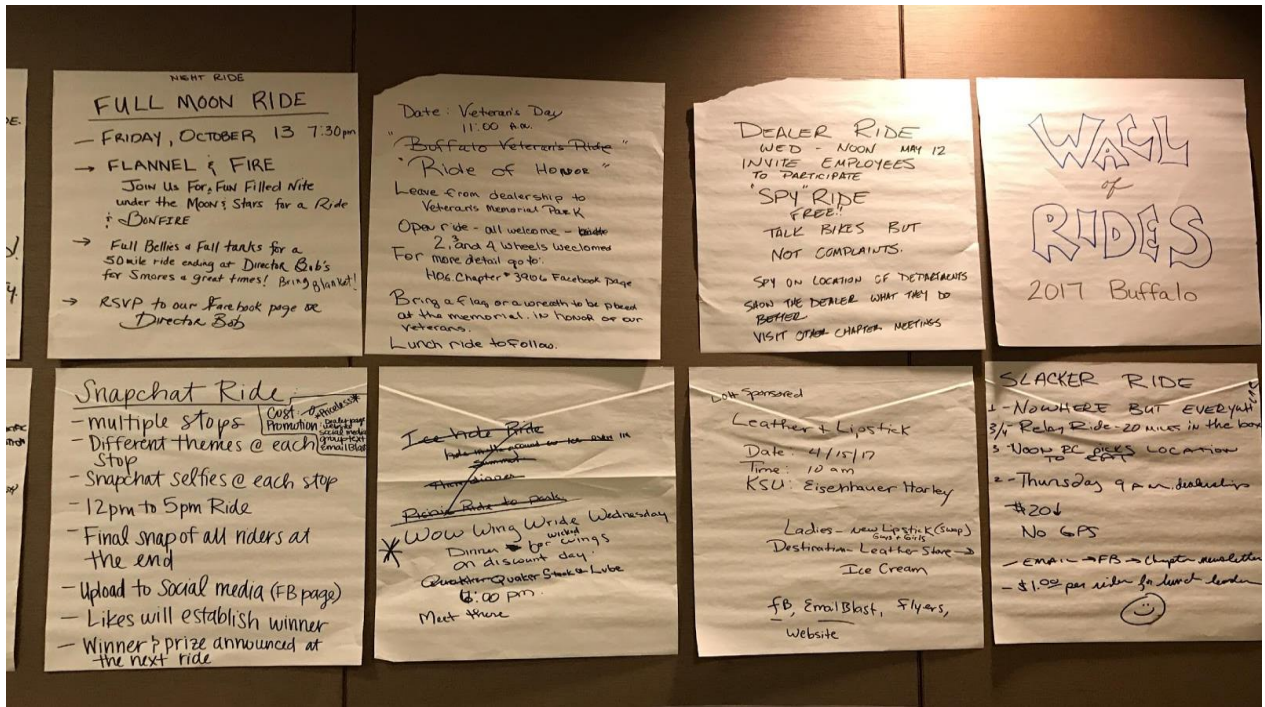 NIGHT RIDE
FULL MOON RIDE
— FRIDAY, OCTOBER 13 7:30pm
→ FLANNEL & FIRE
JOIN US FOR A FUN FILLED NITE
under the MOON & STARS for a RIDE
& BONFIRE
→ Full Bellies & Full tanks for a
50 mile ride ending at Director Bob's
for Smores & great times! Bring Blanket!
→ RSVP to our Facebook page or
Director Bob
Date: Veteran's Day
11:00 A.M.
"Buffalo Veteran's Ride"
"Ride of HONOR"
Leave from dealership to
Veteran's Memorial Park
Open ride - all welcome -
2, 3 and 4 wheels weclomed
For more detail go to:
HOG Chapter # 3906 Facebook Page
Bring a flag or a wreath to be placed
at the memorial. IN HONOR OF our
veterans.
Lunch ride to follow.
DEALER RIDE
WED - NOON MAY 12
INVITE EMPLOYEES
TO PARTICIPATE
"SPY" RIDE
FREE!!
TALK BIKES BUT
NOT COMPLAINTS.
SPY ON LOCATION OF DEPARTMENTS
SHOW THE DEALER WHAT THEY DO
BETTER
VISIT OTHER CHAPTER MEETINGS
WALL
of
RIDES
2017 Buffalo
Snapchat Ride:
- multiple stops
- Different themes @ each
stop
Cost: *Priceless*
Promotion: Dealer page
website
social media
group text
Email Blast
- Snapchat selfies @ each stop
- 12pm to 5pm Ride
- Final snap of all riders at
the end
- Upload to Social media (FB page)
- Likes will establish winner
- Winner & prize announced at
the next ride
Ice hole Ride
summer
Then dinner
Picnic Ride to park
* Wow Wing Wride Wednesday
Dinner for wicked wings
on discount day.
Quaker Steak & Lube
6:00 pm.
Meet there
Sponsored
Leather & Lipstick
Date: 4/15/17
Time: 10 am
KSU: Eisenhauer Harley
Ladies - new Lipstick (swap)
Guys & Girls
Destination - Leather Store →
Ice Cream
FB, Email Blast, Flyers,
Website
SLACKER RIDE
1 - NOWHERE BUT
3/4 - Relay Ride - 20 MILES IN the box
3 - NOON RC PICKS LOCATION
TO EAT
2 - Thursday 9 a.m. dealerships
$20↓
NO GPS
- EMAIL → FB → Chapter newsletter
- $1.00 per rider for lunch leader